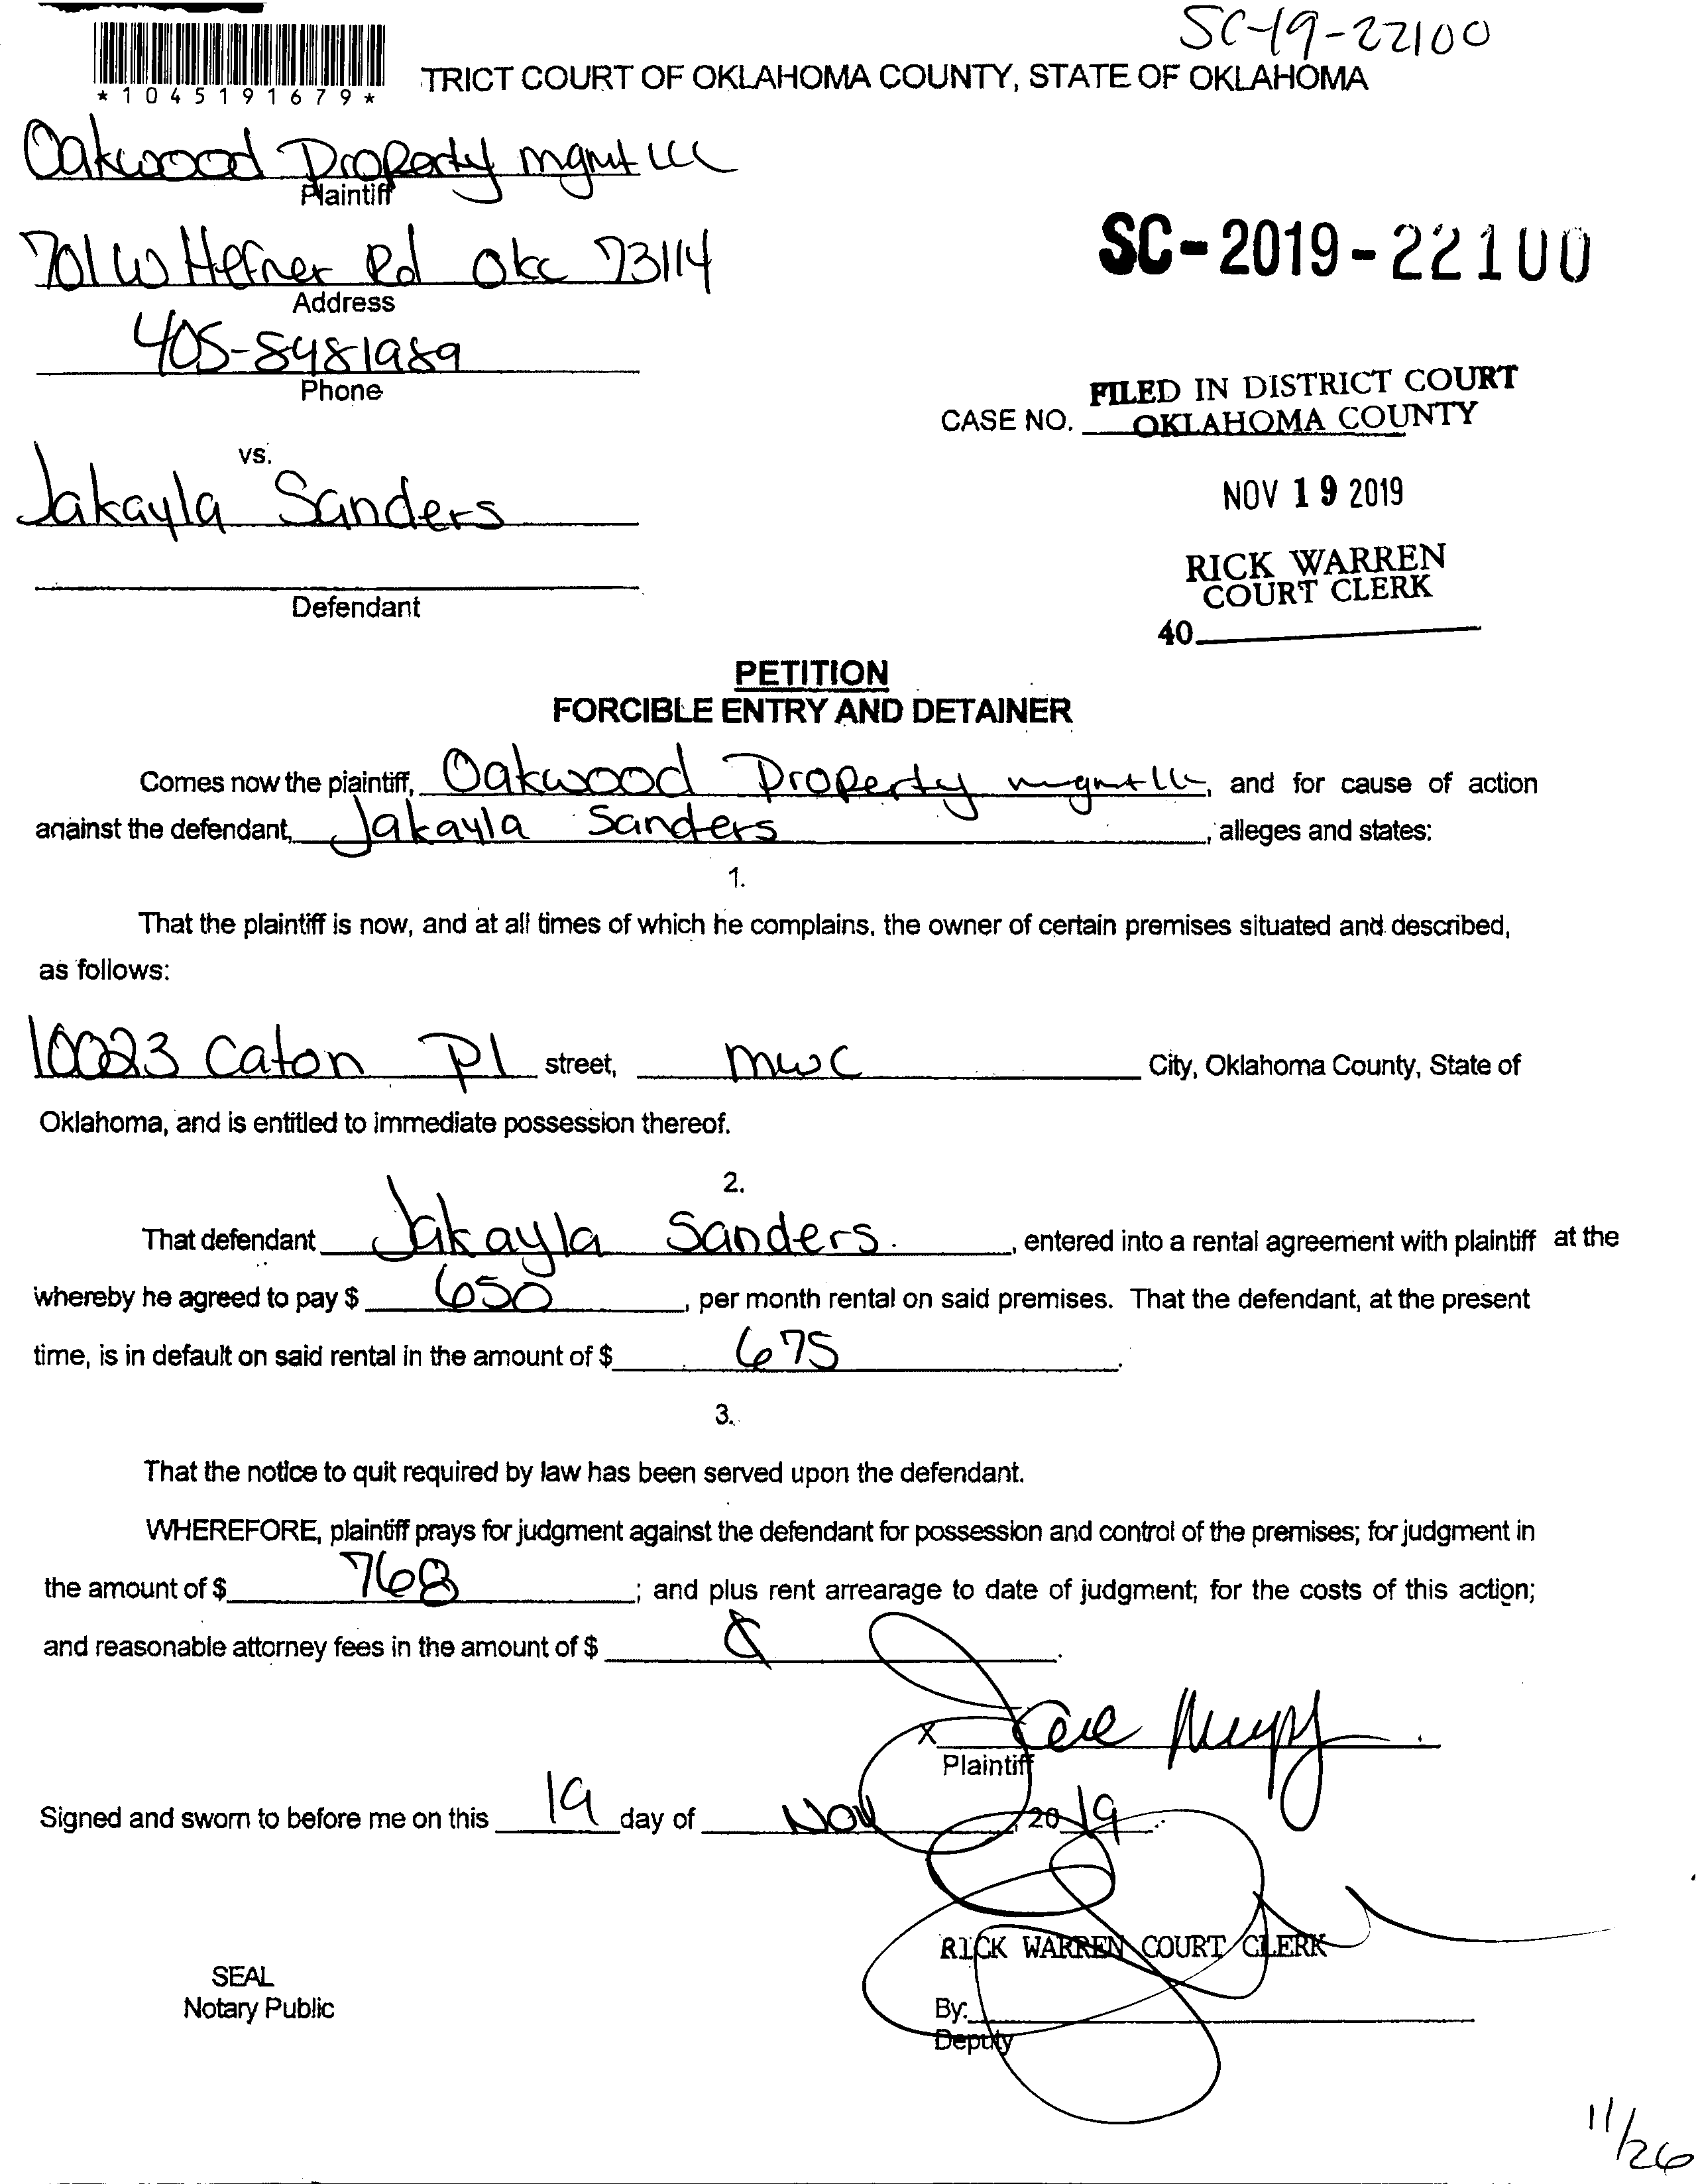 SC-19-22100
*1045191679*
TRICT COURT OF OKLAHOMA COUNTY, STATE OF OKLAHOMA
Oakwood Property mgmt LLC
Plaintiff
701 W Hefner Rd Okc 73114
Address
SC-2019-22100
405-8481989
Phone
FILED IN DISTRICT COURT
CASE NO. OKLAHOMA COUNTY
vs.
Jakayla Sanders
NOV 19 2019
RICK WARREN
COURT CLERK
Defendant
40
PETITION
FORCIBLE ENTRY AND DETAINER
Comes now the plaintiff, Oakwood Property mgmt llc, and for cause of action
against the defendant, Jakayla Sanders, alleges and states:
1.
That the plaintiff is now, and at all times of which he complains, the owner of certain premises situated and described,
as follows:
10023 Caton Pl street, mwc City, Oklahoma County, State of
Oklahoma, and is entitled to immediate possession thereof.
2.
That defendant Jakayla Sanders, entered into a rental agreement with plaintiff at the
whereby he agreed to pay $ 650, per month rental on said premises. That the defendant, at the present
time, is in default on said rental in the amount of $ 675.
3.
That the notice to quit required by law has been served upon the defendant.
WHEREFORE, plaintiff prays for judgment against the defendant for possession and control of the premises; for judgment in
the amount of $ 768; and plus rent arrearage to date of judgment; for the costs of this action;
and reasonable attorney fees in the amount of $ .
X
Plaintiff
Signed and sworn to before me on this 19 day of Nov, 20 19.
RICK WARREN COURT CLERK
SEAL
Notary Public
By:
Deputy
11/26